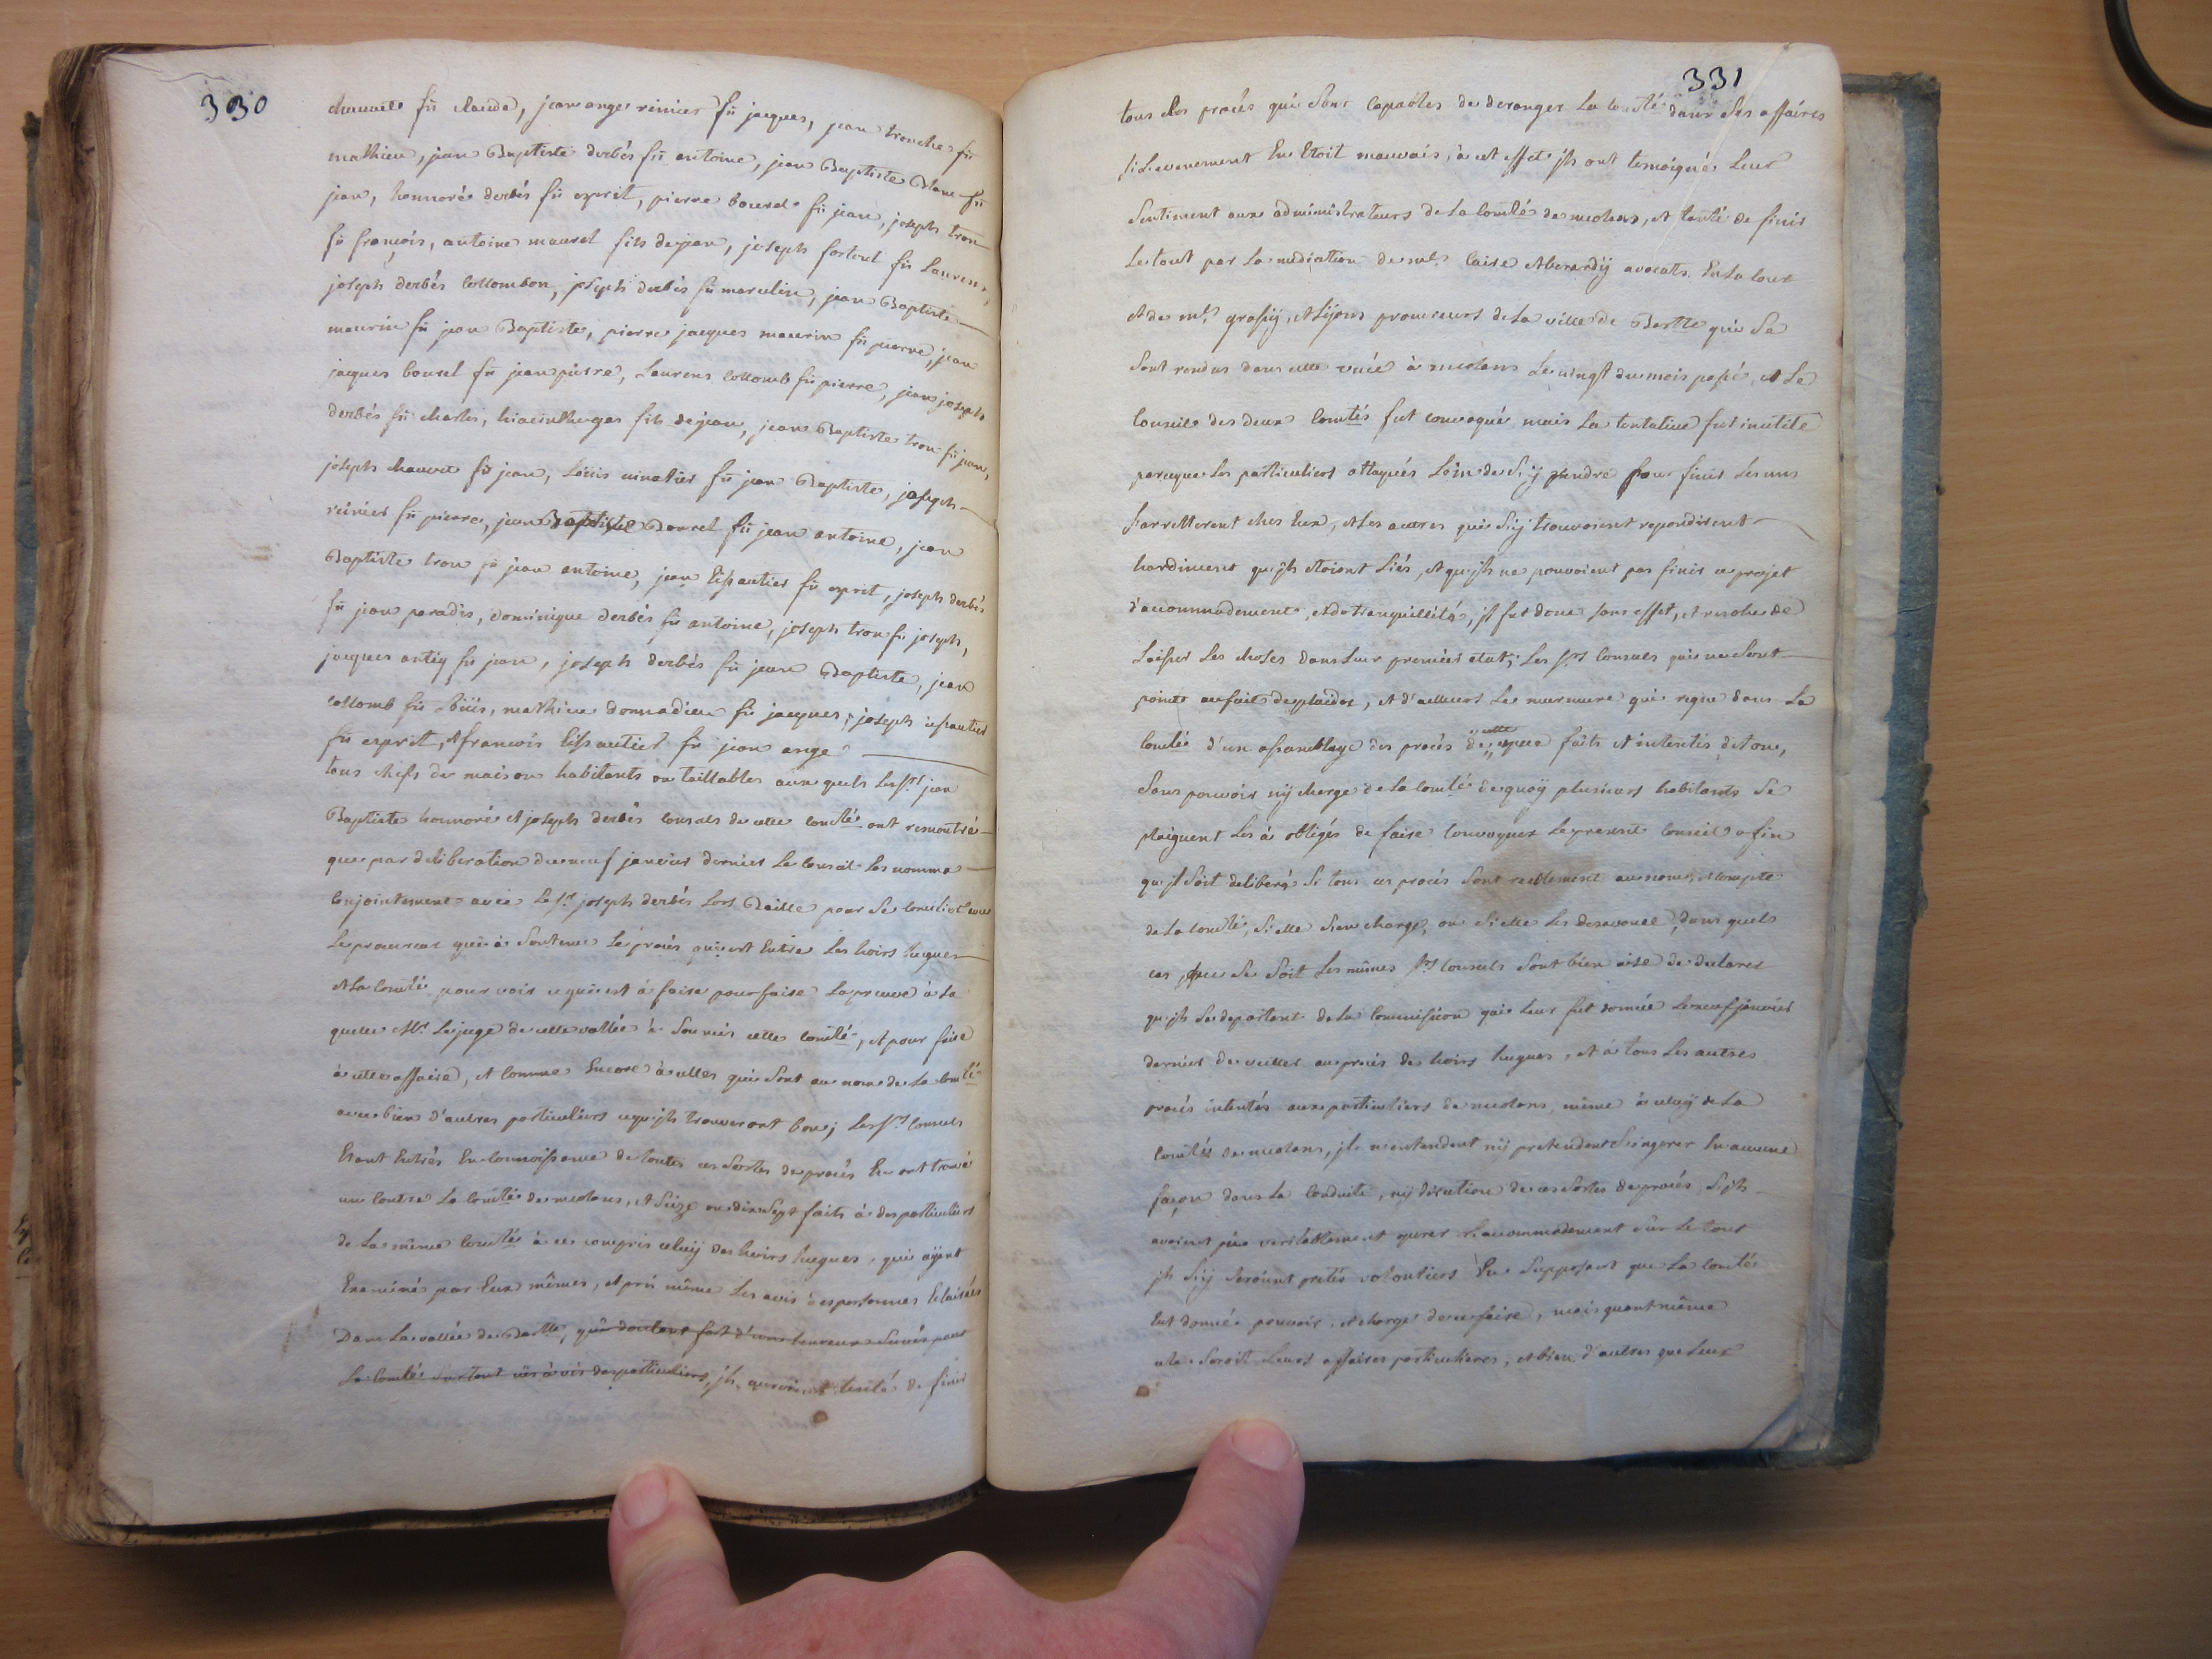 330
chauvet fû claude, jean ange reinier fû jacques, jean tronche fû
mathieu, jean Baptiste derbés fû antoine, jean Baptiste Blanc fû
jean, honnoré derbés fû esprit, pierre bourel fû jean, joseph tron
fû françois, antoine maurel fils de jean, joseph fortoul fû Laurens,
joseph derbés collombon, joseph derbés fû marcelin, jean Baptiste
maurin fû jean Baptiste, pierre jacques maurin fû pierre, jean
jaques bourel fû jean pierre, Laurens collomb fû pierre, jean joseph
derbés fû charles, hiacinthe gas fils de jean, jean Baptiste tron fû jean,
joseph chauvet fû jean, Loüis vinatier fû jean Baptiste, joseph
reinier fû pierre, jean Baptiste Borrel fû jean antoine, jean
Baptiste tron fû jean antoine, jean Eissautier fû esprit, joseph derbés
fû jean paradis, dominique derbés fû antoine, joseph tron fû joseph,
jacques antiq fû jean, joseph derbés fû jean Baptiste, jean
collomb fû Loüis, mathieu donnadieu fû jacques, joseph eissautier
fû esprit, et francois Eissautier fû jean ange
tous chefs de maison habitants ou taillables aux quels Les srs jean
Baptiste honnoré et joseph derbés consuls de cette comté ont remontré
que par deliberation du neuf janvier dernier Le conseil Les nomma
Conjointement avec Le sr joseph derbés Lors Baille pour se concilier avec
Le procureur qui a soutenu Le procés qui est Entre Les hoirs hugues
et La comté pour voir ce qui est à faire pour faire La preuve à La
quelle Mr Le juge de cette vallée a soumis cette comté, et pour faire
à cette affaire, et comme Encore à celles qui sont au nom de La comté
avec bien d'autres particuliers ce qu'jls trouveront bon; Les srs Consuls
Etant Entrés En connoissance de toutes ces sortes de procés En ont trouvé
un contre La comté de meolans, et seize ou dix sept faits à des particuliers
de La même comté à ce compris celuy des hoirs hugues, qui ayant
Examiné par Eux mêmes, et pris même Les avis des personnes Eclairées
Dans La vallée de Bartte, qui doutent fort d'un heureux succés pour
La comté surtout vis à vis des particuliers, jls auroient tenté de finir
331
tous Les procés qui sont capables de deranger La comté dans ses affaires
si L'evenement En Etoit mauvais, à cet effet jls ont temoigné Leur
sentiment aux administrateurs de La comté de meolans, et tenté de finir
Le tout par La mediation de mrs Caire et Berardy avocats En La cour
et de mrs grassy, et Lijons procureurs de La ville de Bartte qui se
sont rendus dans cette vüe à meolans Le vingt du mois passé, et Le
Conseil des deux Comtés fut convoqué mais La tentative fut inutile
parceque Les particuliers attaqués Loin de s'y rendre pour finir Les uns
s'arretterent chés Eux, et Les autres qui s'y trouvoient repondirent
hardiment qu'jls etoient Liés, et qu'jls ne pouvoient pas finir ce projet
d'accommodement, et de tranquillité, jl fut donc sans effet, et resolu de
Laisser Les choses dans Leur premier etat; Les srs Consuls qui ne sont
point au fait de plaider, et d'ailleurs Le murmure qui regne dans La
comté d'un assemblage des procés de cette espece faits et intentés de tous,
sans pouvoir ny charge de La comté de quoy plusieurs habitants se
plaignent Les a obligés de faire Convoquer Le present Conseil afin
qu'jl soit deliberé si tous ces procés sont reellement au nom, et compte
de La comté, si elle s'en charge, ou si elle Les desavoue, dans quels
cas que se soit Les mêmes srs Consuls sont bien aise de declarer
qu'jls se departent de La Commission qui Leur fut donnée Le neuf janvier
dernier de veiller au procés des hoirs hugues, et à tous Les autres
procés intentés aux particuliers de meolans, même à celuy de La
comté de meolans, jls n'entendent ny pretendent s'ingerer En aucune
façon dans La Conduite, ny direction de ces sortes de procés, s'jls
avoient pû veritablement operer L'accommodement sur Le tout
jls s'y seroient pretés volontiers En supposant que La comté
Eut donné pouvoir, et charge de ce faire, mais quant même
cela seroit Leurs affaires particulieres, et bien d'autres que Leur